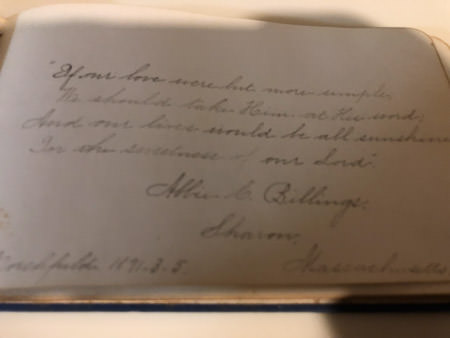 "If our love were but more simple,
We should take Him at His word;
And our lives would be all sunshine
In the sweetness of our Lord".
Abbie C. Billings.
Sharon,
Massachusetts
1891.3.5.